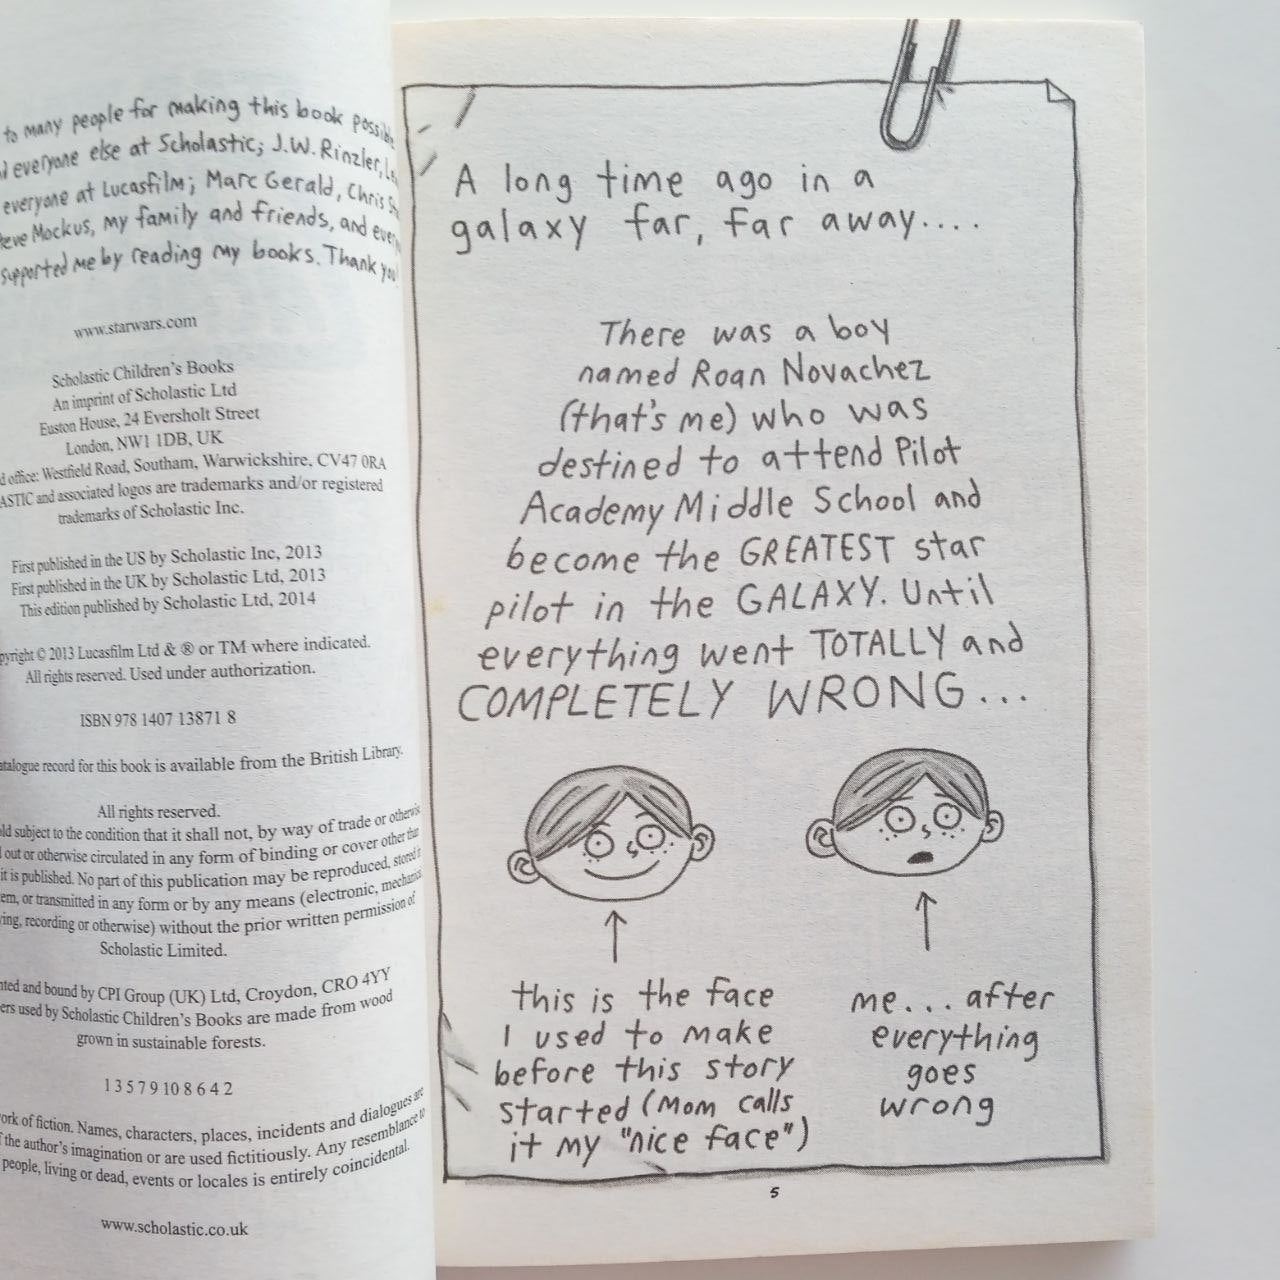 to many people for making this book
everyone else at Scholastic; J.W. Rinzler,
everyone at Lucasfilm; Marc Gerald, Chris
Mockus, my family and friends, and
supported me by reading my books. Thank you
www.starwars.com
Scholastic Children's Books
An imprint of Scholastic Ltd
Euston House, 24 Eversholt Street
London, NW1 1DB, UK
office: Westfield Road, Southam, Warwickshire, CV47 0RA
and associated logos are trademarks and/or registered
trademarks of Scholastic Inc.
First published in the US by Scholastic Inc, 2013
First published in the UK by Scholastic Ltd, 2013
This edition published by Scholastic Ltd, 2014
© 2013 Lucasfilm Ltd & ® or TM where indicated.
All rights reserved. Used under authorization.
ISBN 978 1407 13871 8
record for this book is available from the British Library.
All rights reserved.
subject to the condition that it shall not, by way of trade or
out or otherwise circulated in any form of binding or cover other than
it is published. No part of this publication may be reproduced, stored
or transmitted in any form or by any means (electronic,
recording or otherwise) without the prior written permission of
Scholastic Limited.
and bound by CPI Group (UK) Ltd, Croydon, CR0 4YY
used by Scholastic Children's Books are made from wood
grown in sustainable forests.
1 3 5 7 9 10 8 6 4 2
of fiction. Names, characters, places, incidents and dialogues are
the author's imagination or are used fictitiously. Any resemblance to
people, living or dead, events or locales is entirely coincidental.
www.scholastic.co.uk
A long time ago in a
galaxy far, far away....
There was a boy
named Roan Novachez
(that's me) who was
destined to attend Pilot
Academy Middle School and
become the GREATEST star
pilot in the GALAXY. Until
everything went TOTALLY and
COMPLETELY WRONG...
this is the face
I used to make
before this story
started (Mom calls
it my "nice face")
me... after
everything
goes
wrong
5